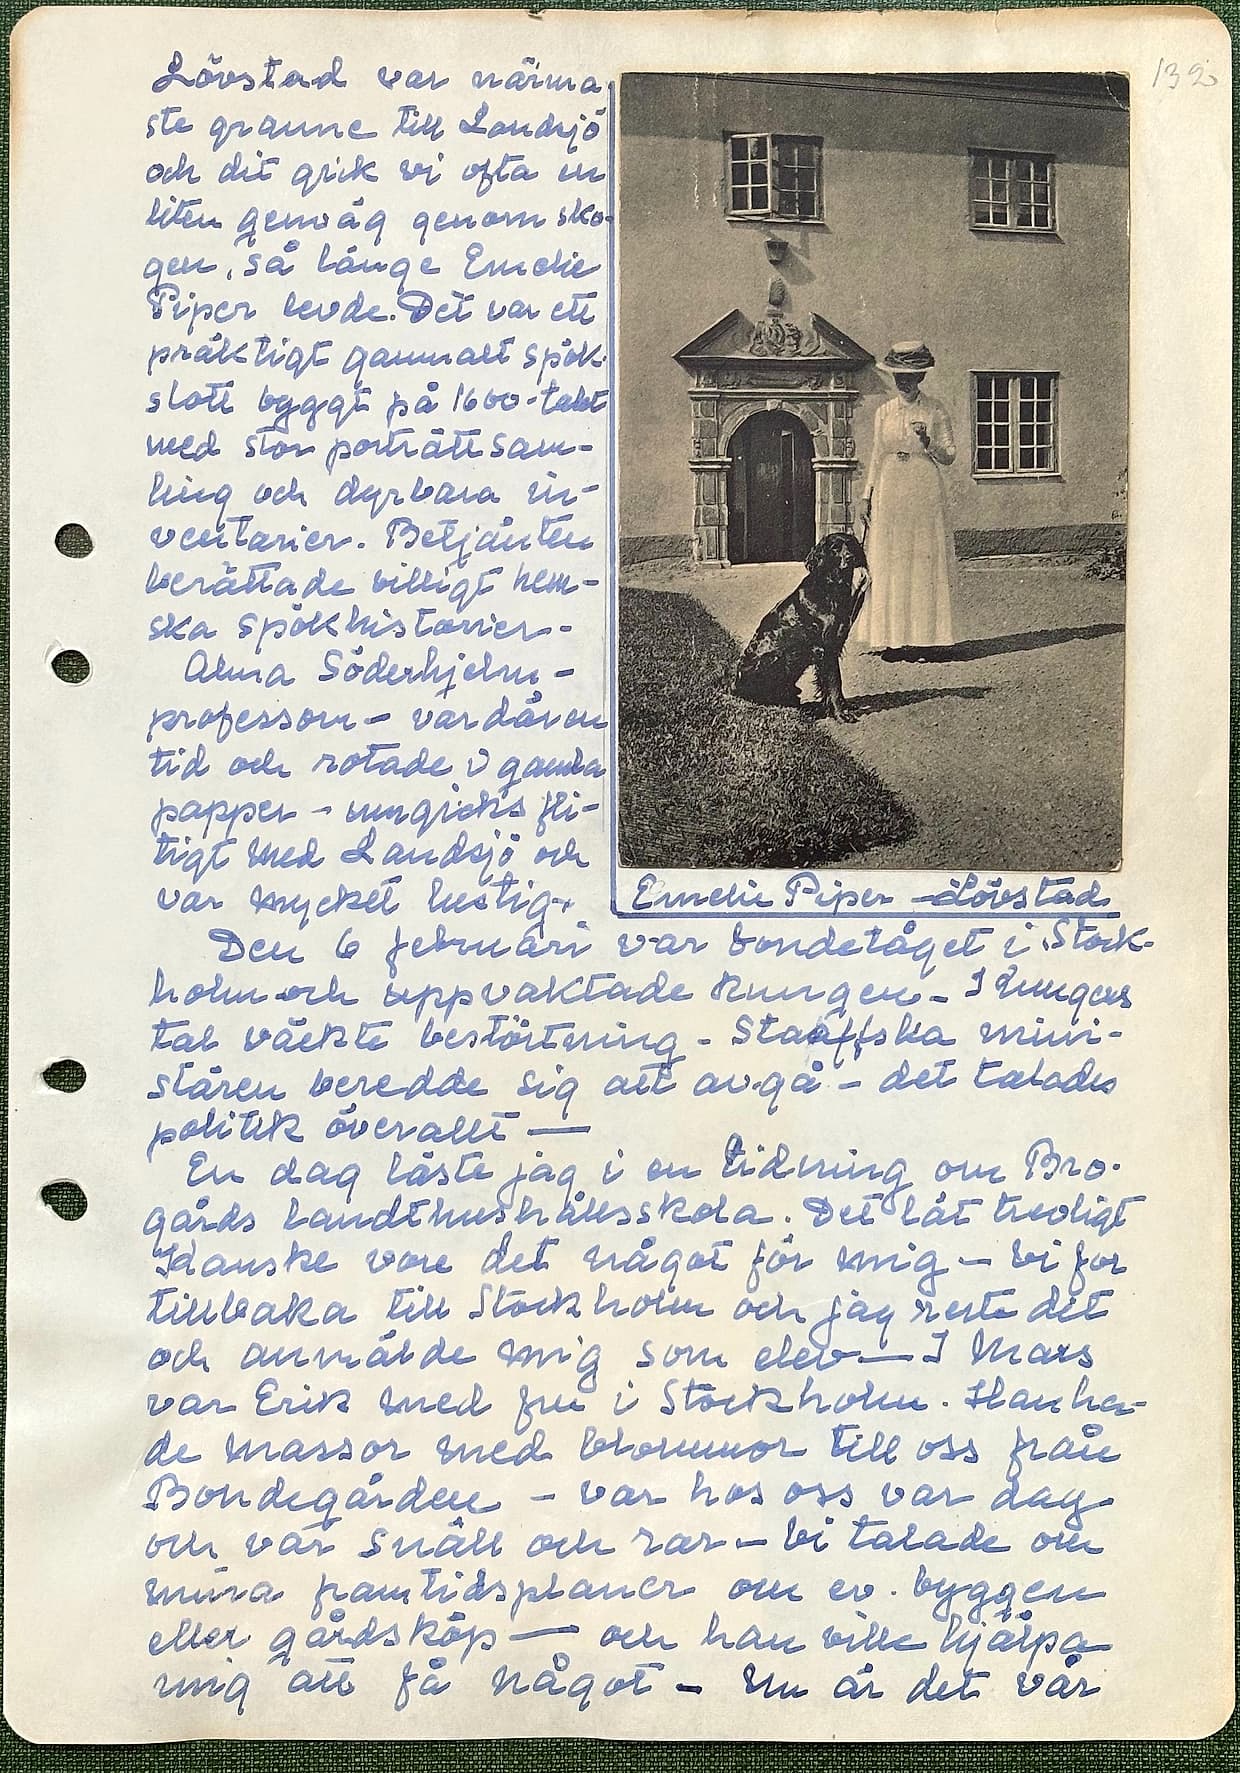 132
Lövstad var närma
ste granne till Landsjö
och dit gick vi ofta en
liten genväg genom sko-
gen, så länge Emelie
Piper levde. Det var ett
präktigt gammalt spök-
slott byggt på 1600-talet
med stor porträttsam-
ling och dyrbara in-
ventarier. Betjänten
berättade villigt hem-
ska spökhistorier -
Alma Söderhjelm -
professorn - var där en
tid och rotade i gamla
papper - umgicks fli-
tigt med Landsjö och
var mycket lustig.
Emelie Piper - Lövstad
Den 6 februari var bondetåget i Stock-
holm och uppvaktade kungen - Kungens
tal väckte bestörtning - Staaffska mini-
stären beredde sig att avgå - det talades
politik överallt —
En dag läste jag i en tidning om Bro-
gårds landthushållsskola. Det lät trevligt
Kanske vore det något för mig - vi for
tillbaka till Stockholm och jag reste dit
och anmälde mig som elev — I Mars
var Erik med fru i Stockholm. Han ha-
de massor med blommor till oss från
Bondegården - var hos oss var dag
och var snäll och rar - vi talade om
mina framtidsplaner om ev. byggen
eller gårdsköp — och han ville hjälpa
mig att få något - nu är det vår